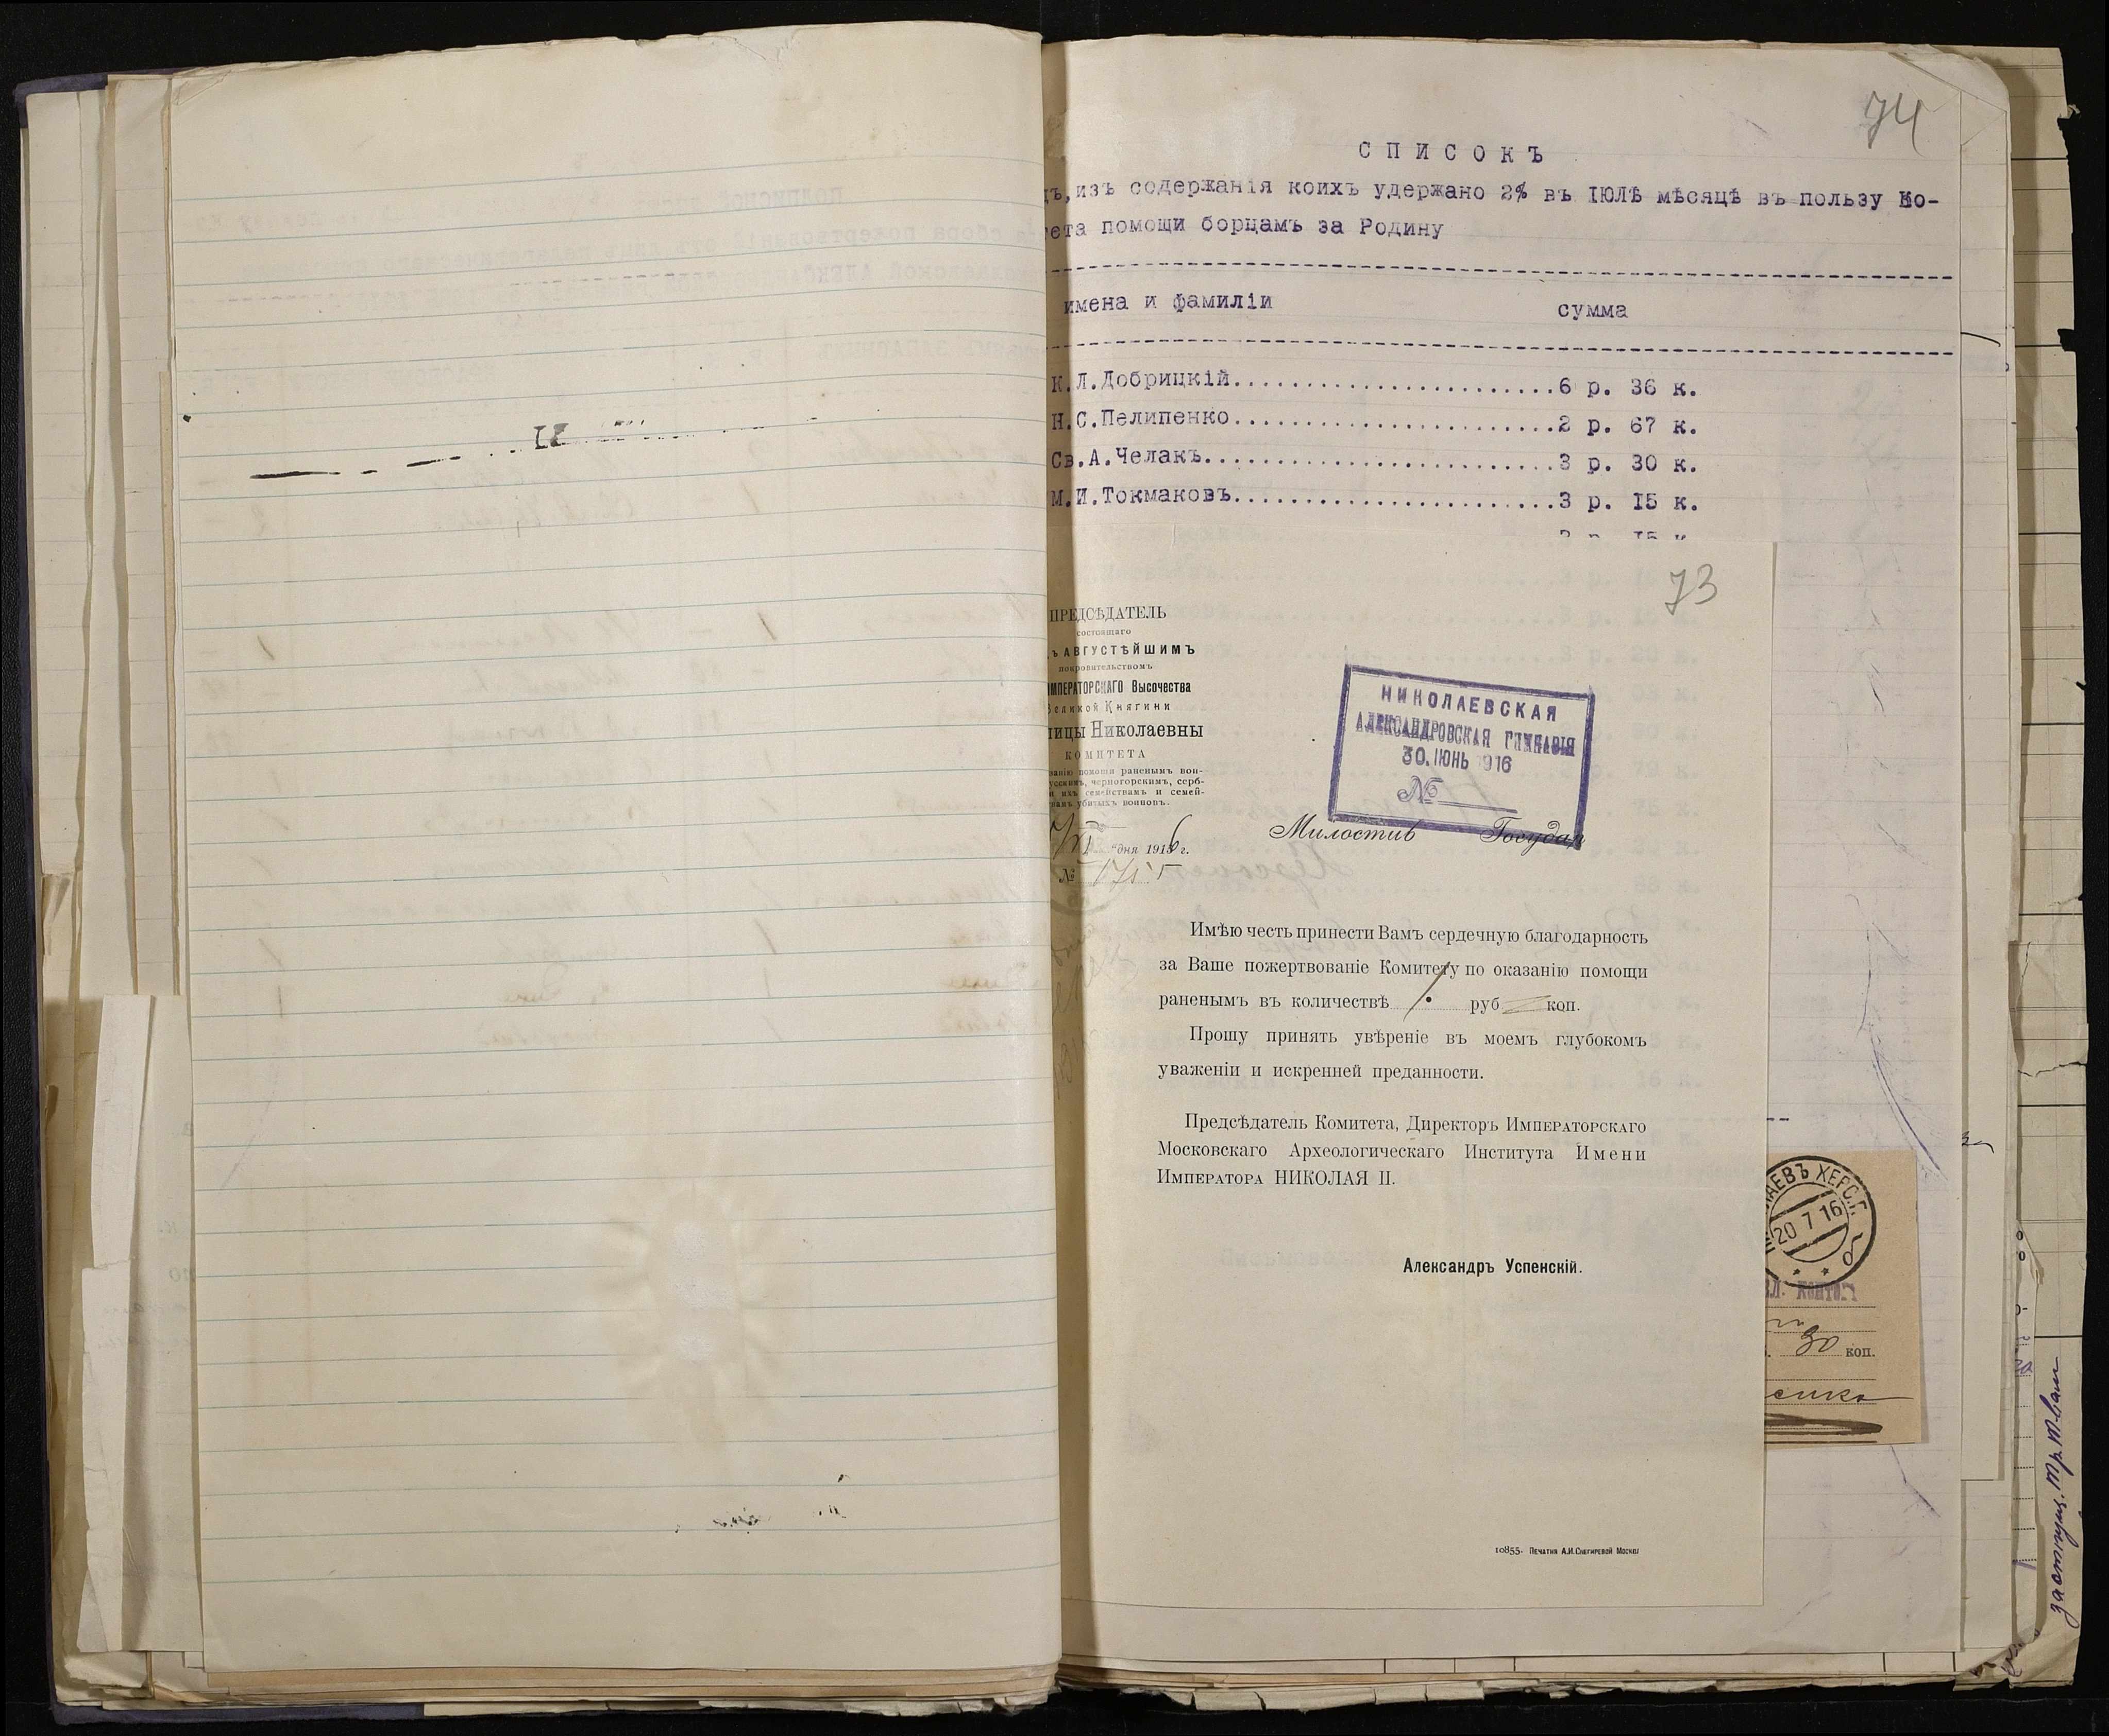 74
СПИСОКЪ
изъ содержанія коихъ удержано 2% въ ІЮЛѢ мѣсяцѣ въ пользу Ко-
ета помощи борцамъ за Родину
имена и фамиліи сумма
К.Л.Добрицкій........................6 р. 36 к.
Н.С.Пелипенко........................2 р. 67 к.
Св.А.Челакъ..........................3 р. 30 к.
М.И.Токмаковъ........................3 р. 15 к.
73
ПРЕДСѢДАТЕЛЬ
состоящаго
АВГУСТѢЙШИМЪ
покровительствомъ
ИМПЕРАТОРСКАГО Высочества
Великой Княгини
ицы Николаевны
КОМИТЕТА
занію помощи раненымъ вои-
усскимъ, черногорскимъ, серб-
и ихъ семействамъ и семей-
вамъ убитыхъ воиновъ.
7/VI "дня 1916 г.
№ 1755
НИКОЛАЕВСКАЯ
АЛЕКСАНДРОВСКАЯ ГИМНАЗІЯ
30.ІЮНЬ 1916
№
Милостив Государ
Имѣю честь принести Вамъ сердечную благодарность
за Ваше пожертвованіе Комитету по оказанію помощи
раненымъ въ количествѣ 1 руб. коп.
Прошу принять увѣреніе въ моемъ глубокомъ
уваженіи и искренней преданности.
Предсѣдатель Комитета, Директоръ ИМПЕРАТОРСКАГО
Московскаго Археологическаго Института Имени
ИМПЕРАТОРА НИКОЛАЯ II.
Александръ Успенскій.
10855. Печатня А.И.Снегиревой Москва
ЛАЕВЪ ХЕРС.Г.
20 7 16
КОНТО
30 коп.
енко